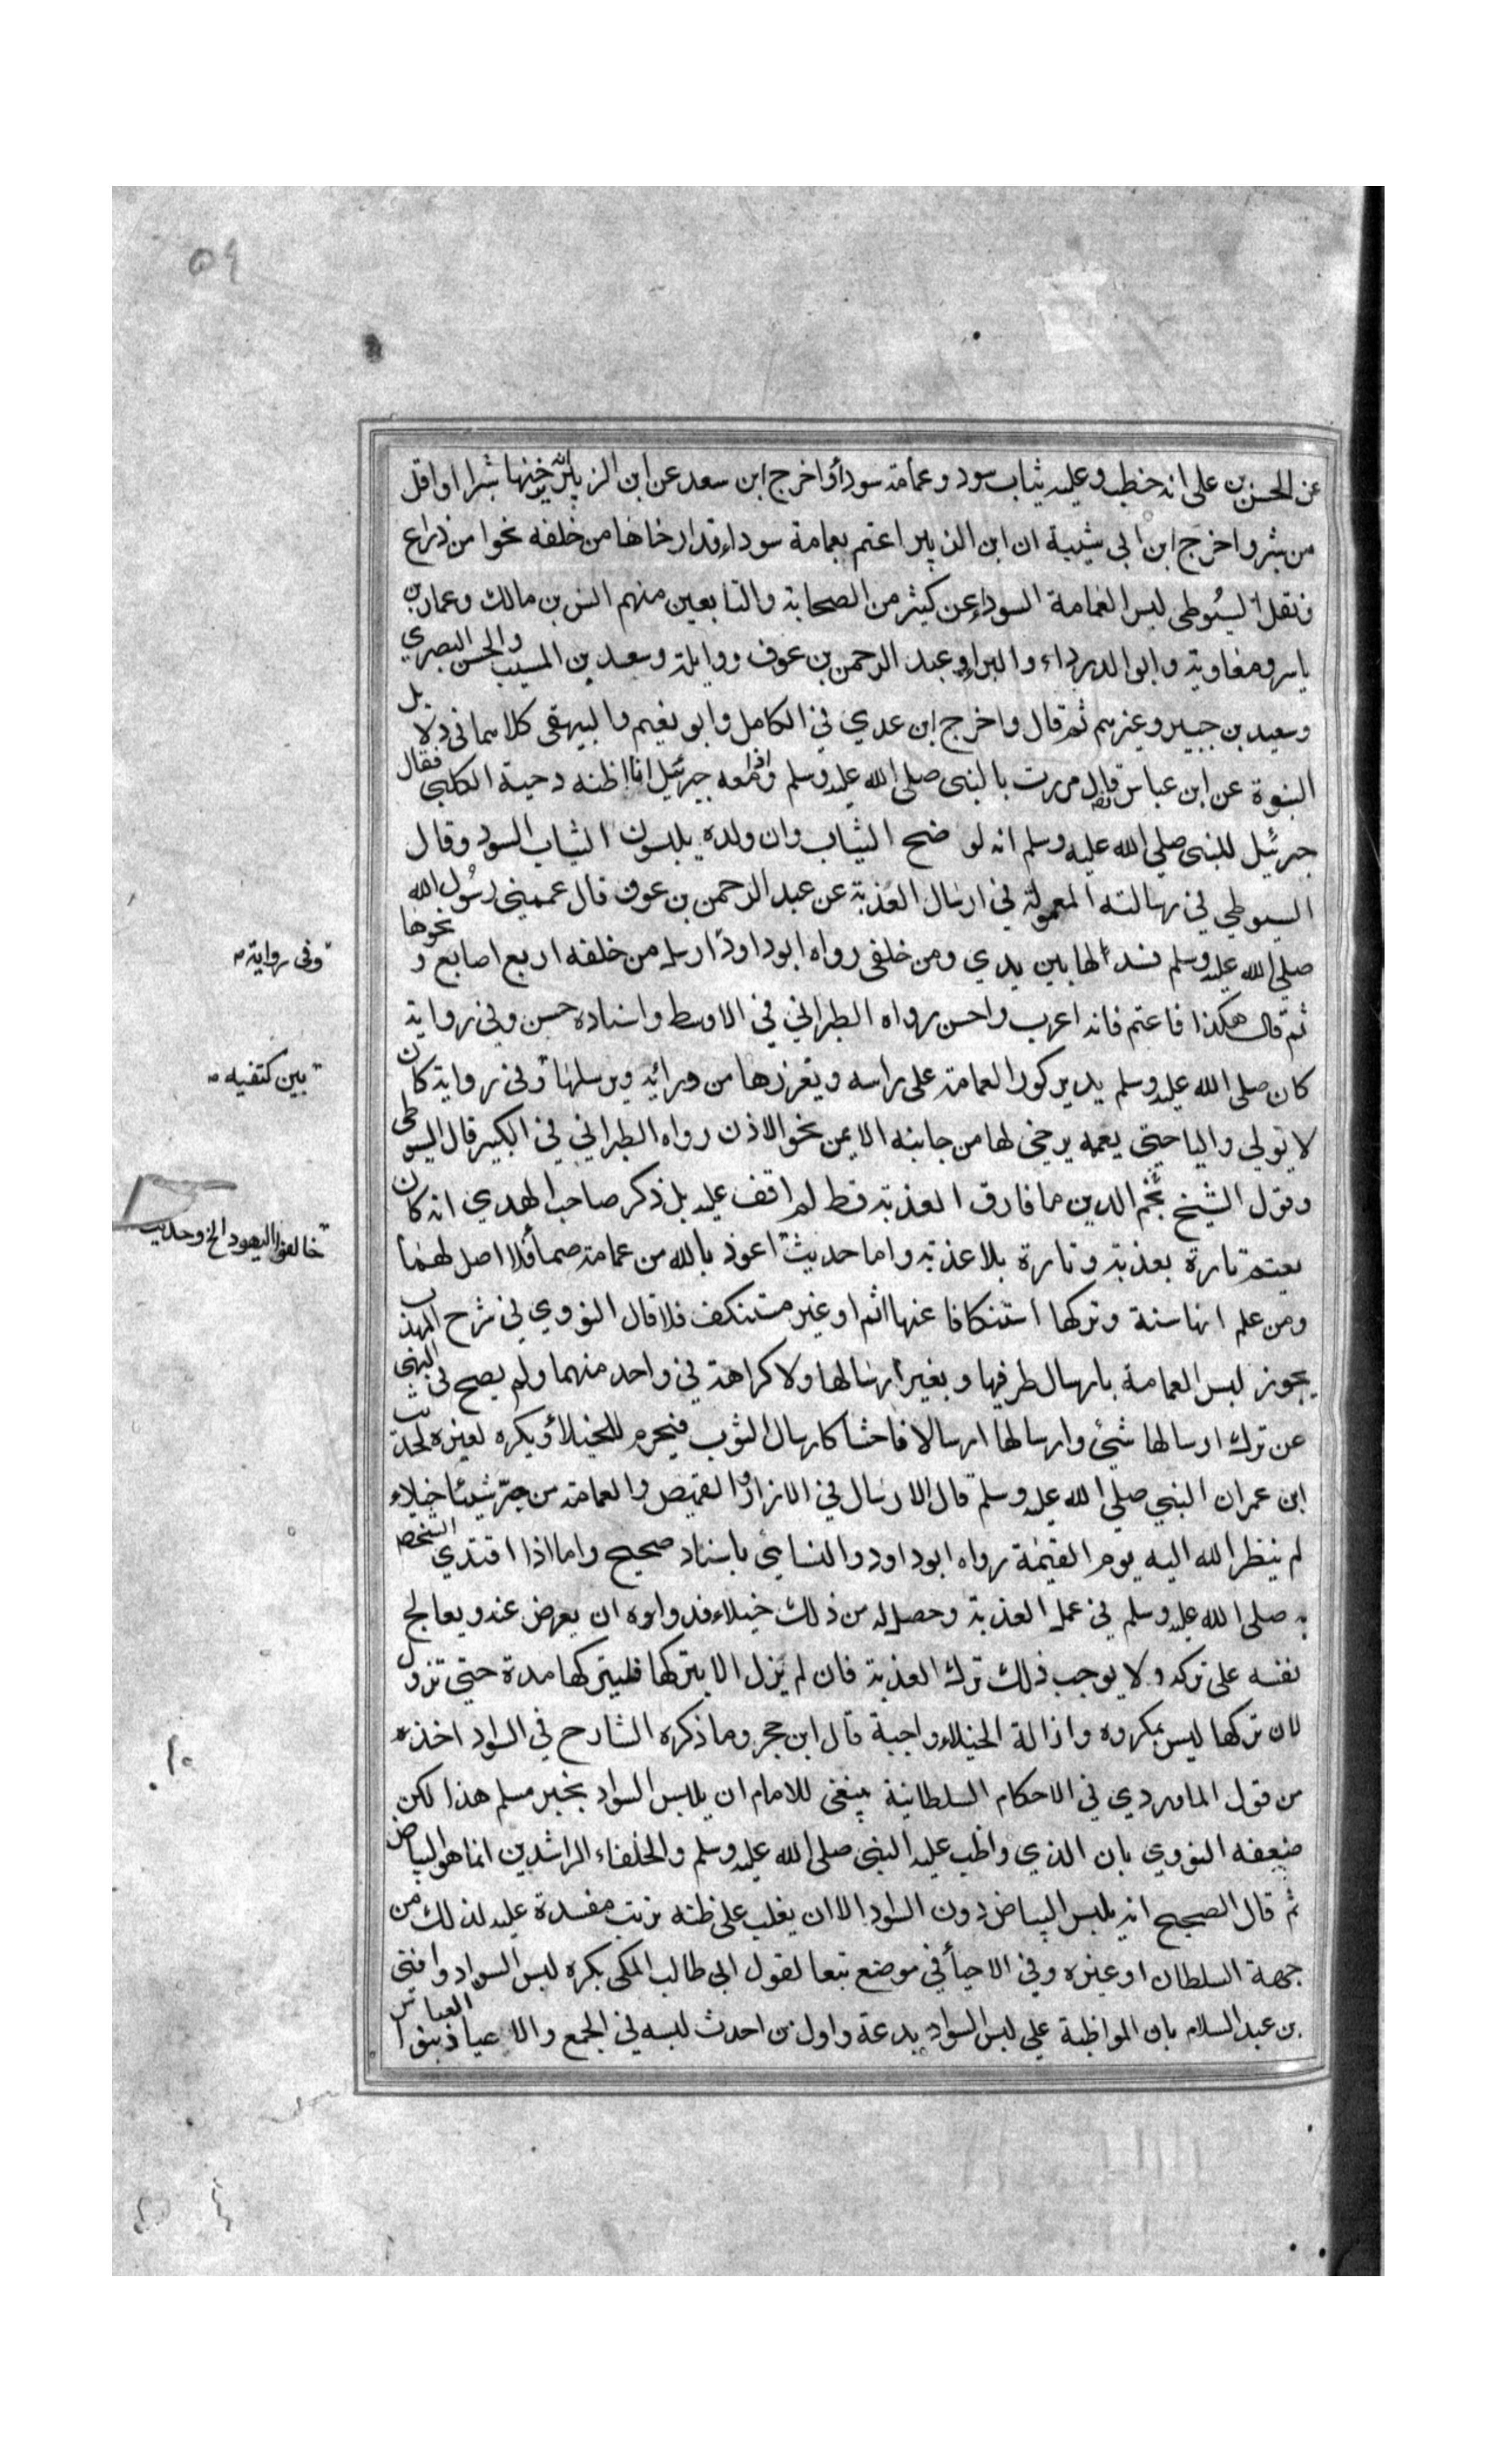 ٥٩
عن الحسن بن علي انه خطب وعليه ثياب سود وعمامة سوداء واخرج ابن سعد عن ابن الزبير انه يرخيها شبرا او اقل
من شبر واخرج ابن ابي شيبة ان ابن الزبير اعتم بعمامة سوداء قد ارخاها من خلفه نحوا من ذراع
ونقل السيوطي لبس العمامة السوداء عن كثير من الصحابة والتابعين منهم انس بن مالك وعمار بن
ياسر ومعاوية وابو الدرداء والبراء وعبد الرحمن بن عوف وواثلة وسعيد بن المسيب والحسن البصري
وسعيد بن جبير وغيرهم ثم قال واخرج ابن عدي في الكامل وابو نعيم والبيهقي كلاهما في دلايل
النبوة عن ابن عباس قال مررت بالنبي صلى الله عليه وسلم واذا معه جبرئيل انا اظنه دحية الكلبي فقال
جبرئيل للنبي صلى الله عليه وسلم انه لوضح الثياب وان ولده يلبسون الثياب السود وقال
السيوطي في رسالته المعمولة في ارسال العذبة عن عبد الرحمن بن عوف قال عممني رسول الله
صلى الله عليه وسلم فسدلها بين يدي ومن خلفي رواه ابو داود ارسل من خلفه اربع اصابع ونحوها
وفى رواية
ثم قال هكذا فاعتم فانه اعرب واحسن رواه الطبراني في الاوسط واسناده حسن وفي رواية
كان صلى الله عليه وسلم يدير كور العمامة على راسه ويغرزها من ورائه ويرسلها وفى رواية كان
بين كتفيه
لا يولي واليا حتى يعممه يرخى لها من جانبه الايمن نحو الاذن رواه الطبراني في الكبير قال السيوطى
وقول الشيخ نجم الدين ما فارق العذبة قط لم اقف عليه بل ذكر صاحب الهدي انه كان
يعتم تارة بعذبة وتارة بلا عذبة واما حديث اعوذ بالله من عمامة صماء فلا اصل لهما
خالفوا اليهود الخ وحديث
ومن علم انها سنة وتركها استنكافا عنها اثم او غير مستنكف فلا قال النووي في شرح المهذب
يجوز لبس العمامة بارسال طرفيها وبغير ارسالها ولا كراهة في واحد منهما ولم يصح فى النهى
عن ترك ارسالها شئ وارسالها ارسالا فاحشا كارسال الثوب فيحرم للخيلاء ويكره لغيره لحديث
ابن عمر ان النبي صلى الله عليه وسلم قال الارسال في الازار والقميص والعمامة من جر شيئا خيلاء
لم ينظر الله اليه يوم القيمة رواه ابو داود والنسائي باسناد صحيح واما اذا اقتدي الشخص
به صلى الله عليه وسلم في عمل العذبة وحصل له من ذلك خيلاء فدواوه ان يعرض عنه ويعالج
نفسه على تركه ولا يوجب ذلك ترك العذبة فان لم يزل الا بتركها فليتركها مدة حتى تزول
لان تركها ليس بمكروه وازالة الخيلاء واجبة قال ابن حجر وما ذكره الشارح في السواد اخذه
من قول الماوردي في الاحكام السلطانية ينبغى للامام ان يلبس السواد بخبر مسلم هذا لكن
ضعفه النووي بان الذي واظب عليه النبى صلى الله عليه وسلم والخلفاء الراشدين انما هو البياض
ثم قال الصحيح انه يلبس البياض دون السواد الا ان يغلب على ظنه ترتب مفسدة عليه لذلك من
جهة السلطان او غيره وفي الاحياء في موضع تبعا لقول ابي طالب المكى يكره لبس السواد وافتى
بن عبد السلام بان المواظبة على لبس السواد بدعة واول من احدث لبسه في الجمع والاعياد بنو العباس